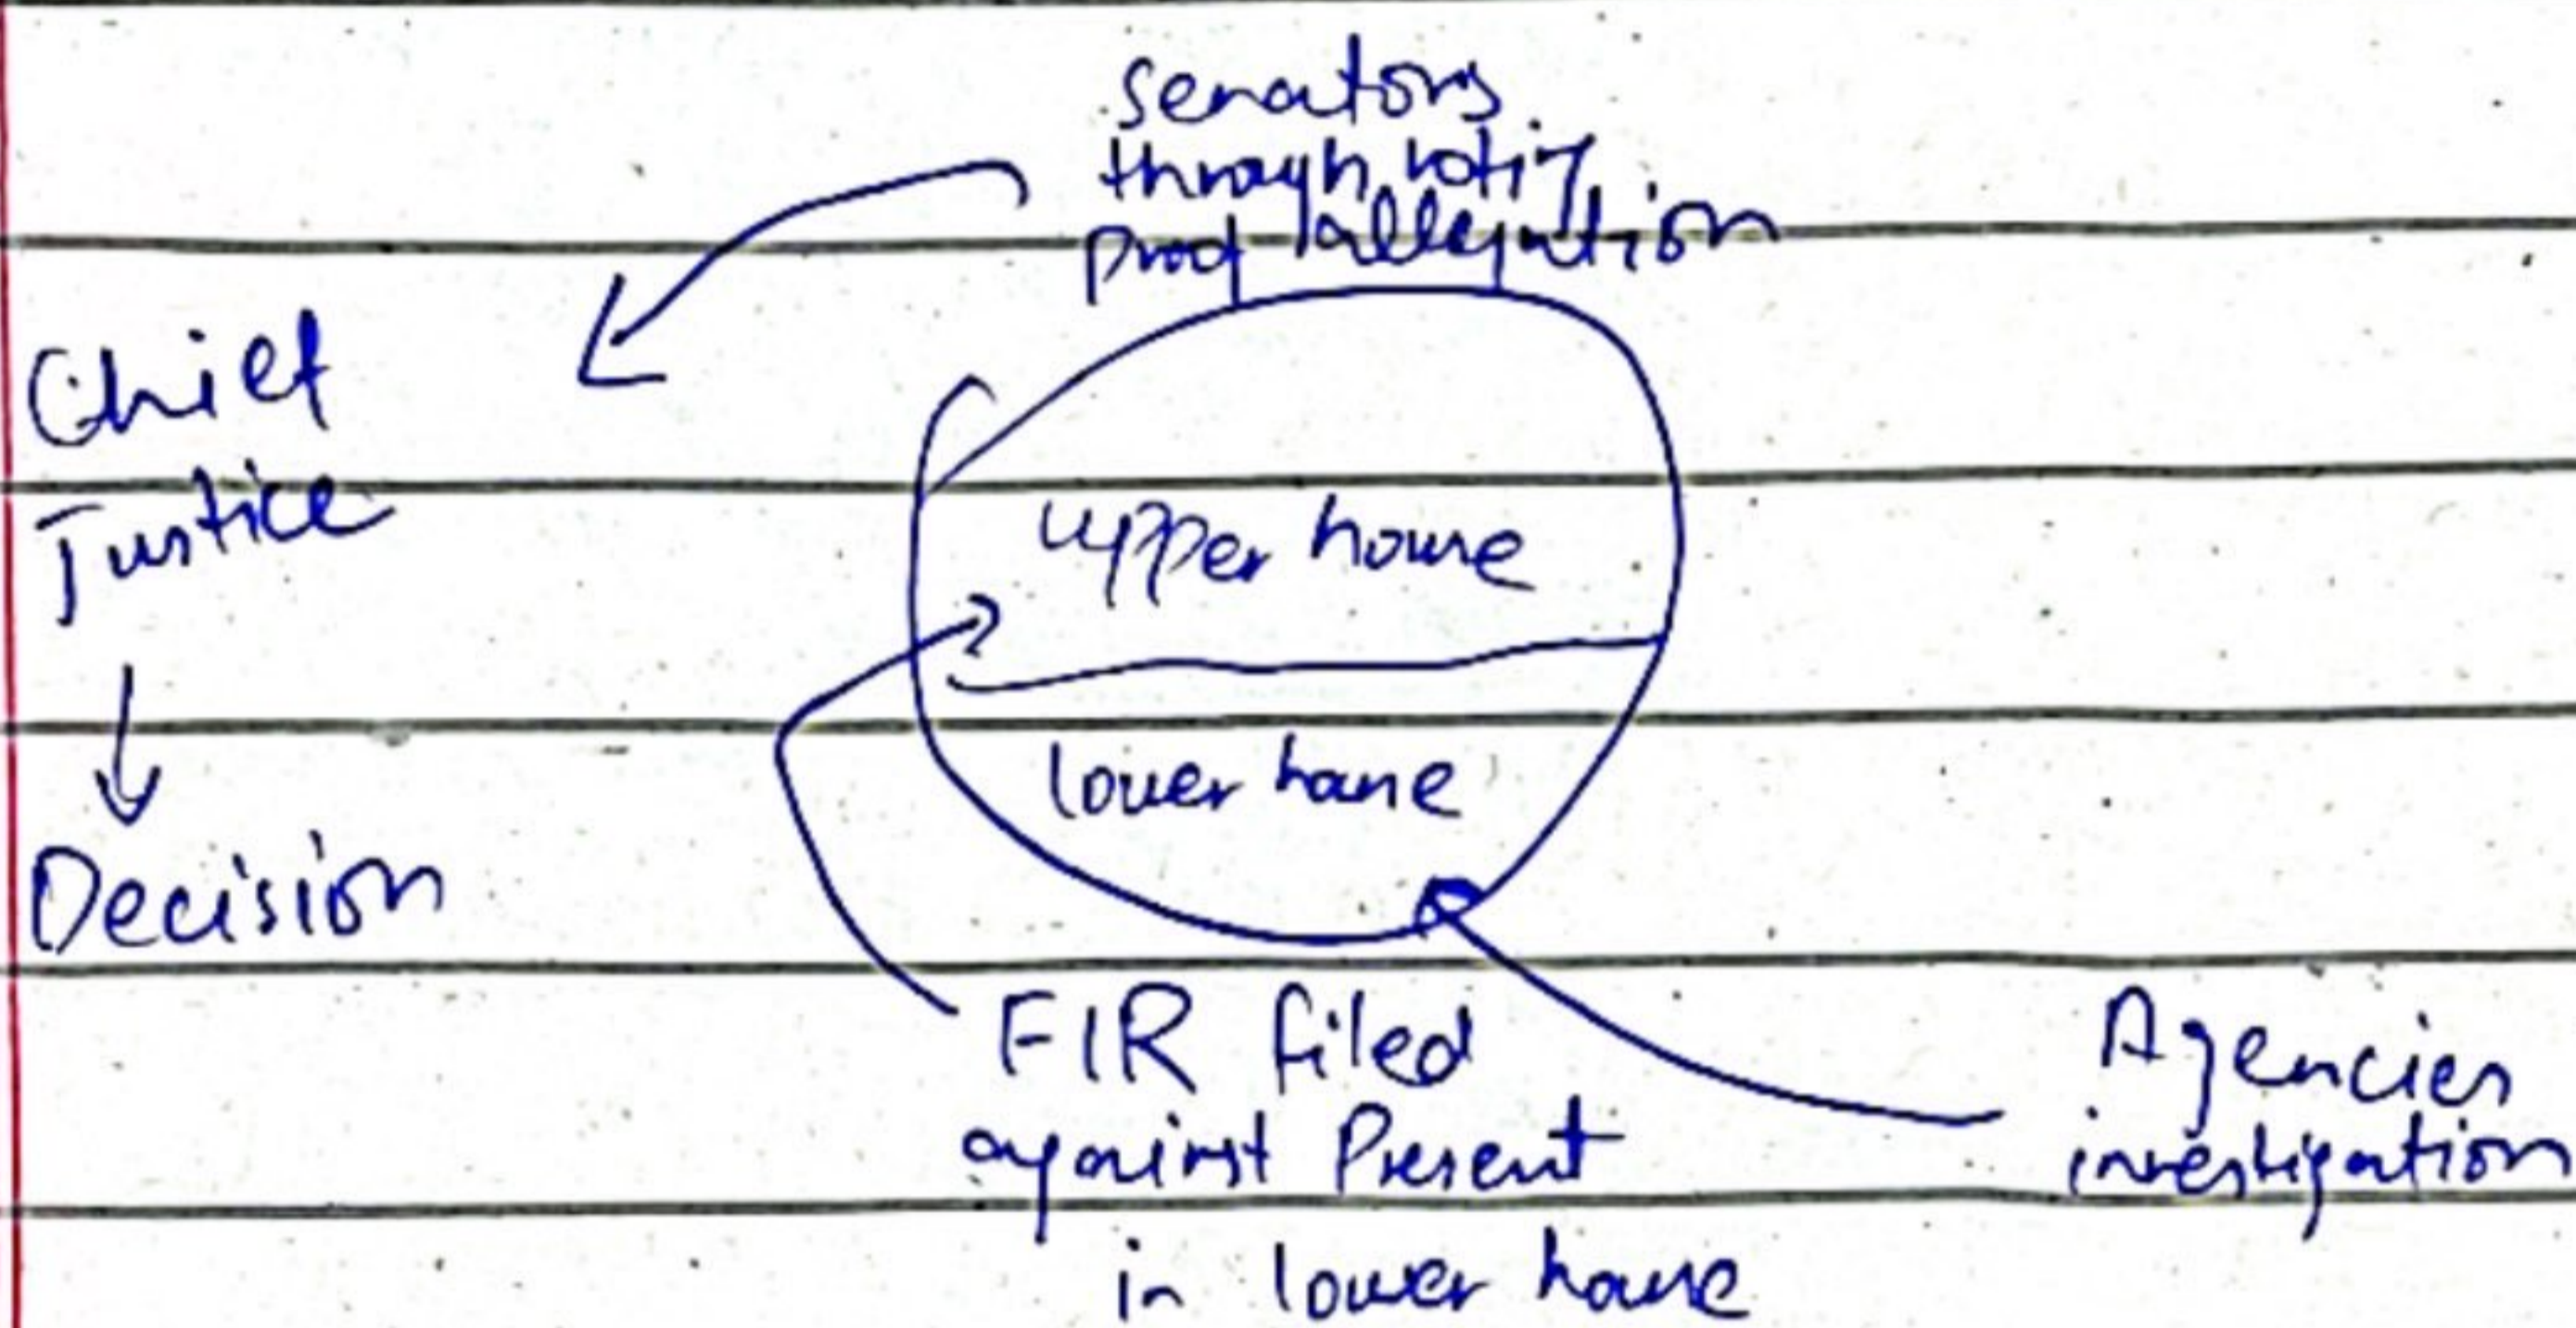 senators
through voting
proof allegation
Chief
Justice
Decision
upper house
lower house
FIR filed
against Present
in lower house
Agencies
investigation